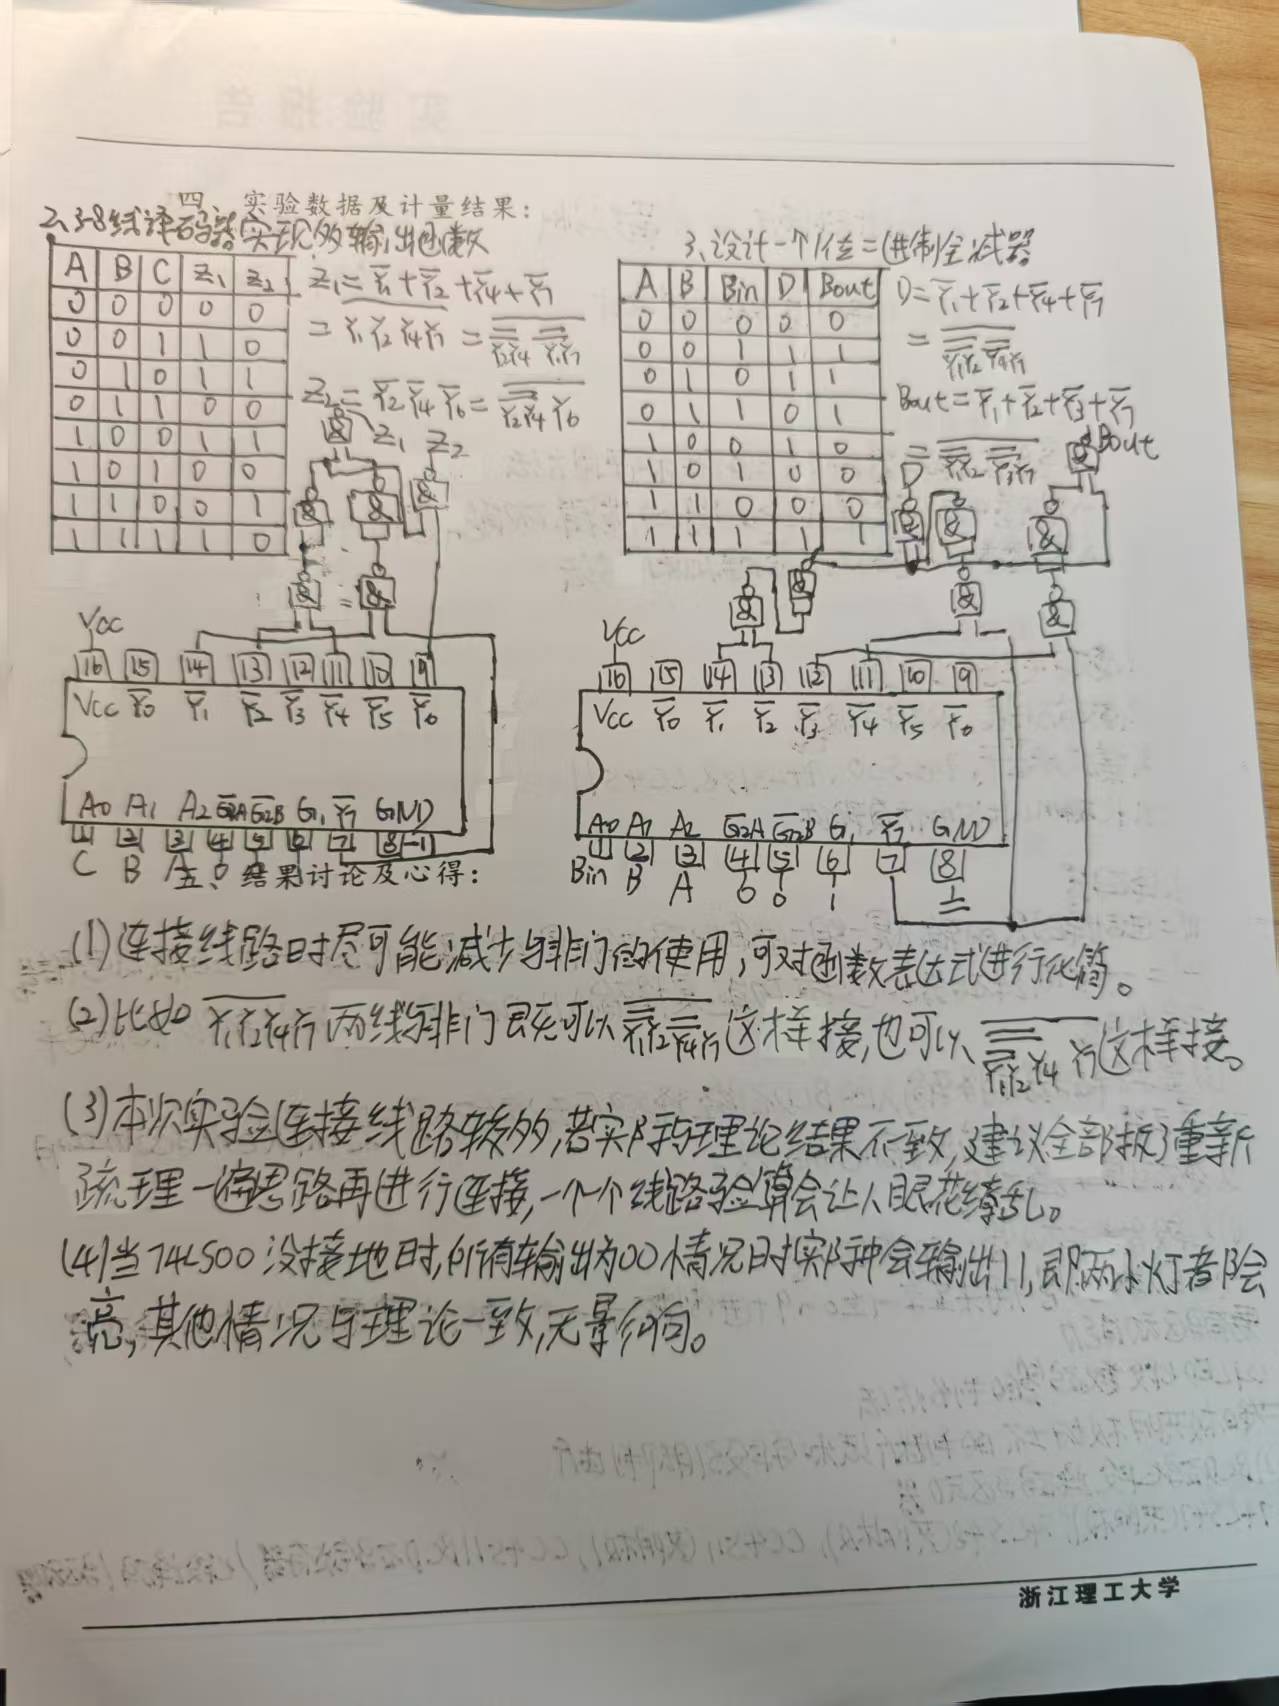 四、实验数据及计量结果:
2、3-8线译码器实现多输出函数
A B C Z₁ Z₂
0 0 0 0 0
0 0 1 1 0
0 1 0 1 1
0 1 1 0 0
1 0 0 1 1
1 0 1 0 0
1 1 0 0 1
1 1 1 1 0
Z₁ Z₂
& & & &
& &
Vcc
16 15 14 13 12 11 10 9
Vcc Y̅₀ Y̅₁ Y̅₂ Y̅₃ Y̅₄ Y̅₅ Y̅₆
A₀ A₁ A₂ G̅₂A G̅₂B G₁ Y̅₇ GND
1 2 3 4 5 6 7 8
C B A
3、设计一个1位二进制全减器
A B Bin D Bout
0 0 0 0 0
0 0 1 1 1
0 1 0 1 1
0 1 1 0 1
1 0 0 1 0
1 0 1 0 0
1 1 0 0 0
1 1 1 1 1
D=Y̅₁+Y̅₂+Y̅₄+Y̅₇
Bout=Y̅₁+Y̅₂+Y̅₃+Y̅₇
D Bout
Vcc
16 15 14 13 12 11 10 9
Vcc Y̅₀ Y̅₁ Y̅₂ Y̅₃ Y̅₄ Y̅₅ Y̅₆
A₀ A₁ A₂ G̅₂A G̅₂B G₁ Y̅₇ GND
1 2 3 4 5 6 7 8
Bin B A 0 0 1
五、结果讨论及心得:
(1)连接线路时尽可能减少与非门的使用,可对函数表达式进行化简。
(2)比如 Y₁Y₂Y₄Y₇ 两线与非门既可以 Y₁Y₂Y₄Y₇ 这样接,也可以 Y₁Y₂Y₄Y₇ 这样接。
(3)本次实验连接线路较多,若实际与理论结果不一致,建议全部拔了重新
疏理一遍思路再进行连接,一个个线路验算会让人眼花缭乱。
(4)当74LS00没接地时,所有输出为00情况时实际种会输出11,即两小灯都会
亮,其他情况与理论一致,无影响。
浙江理工大学